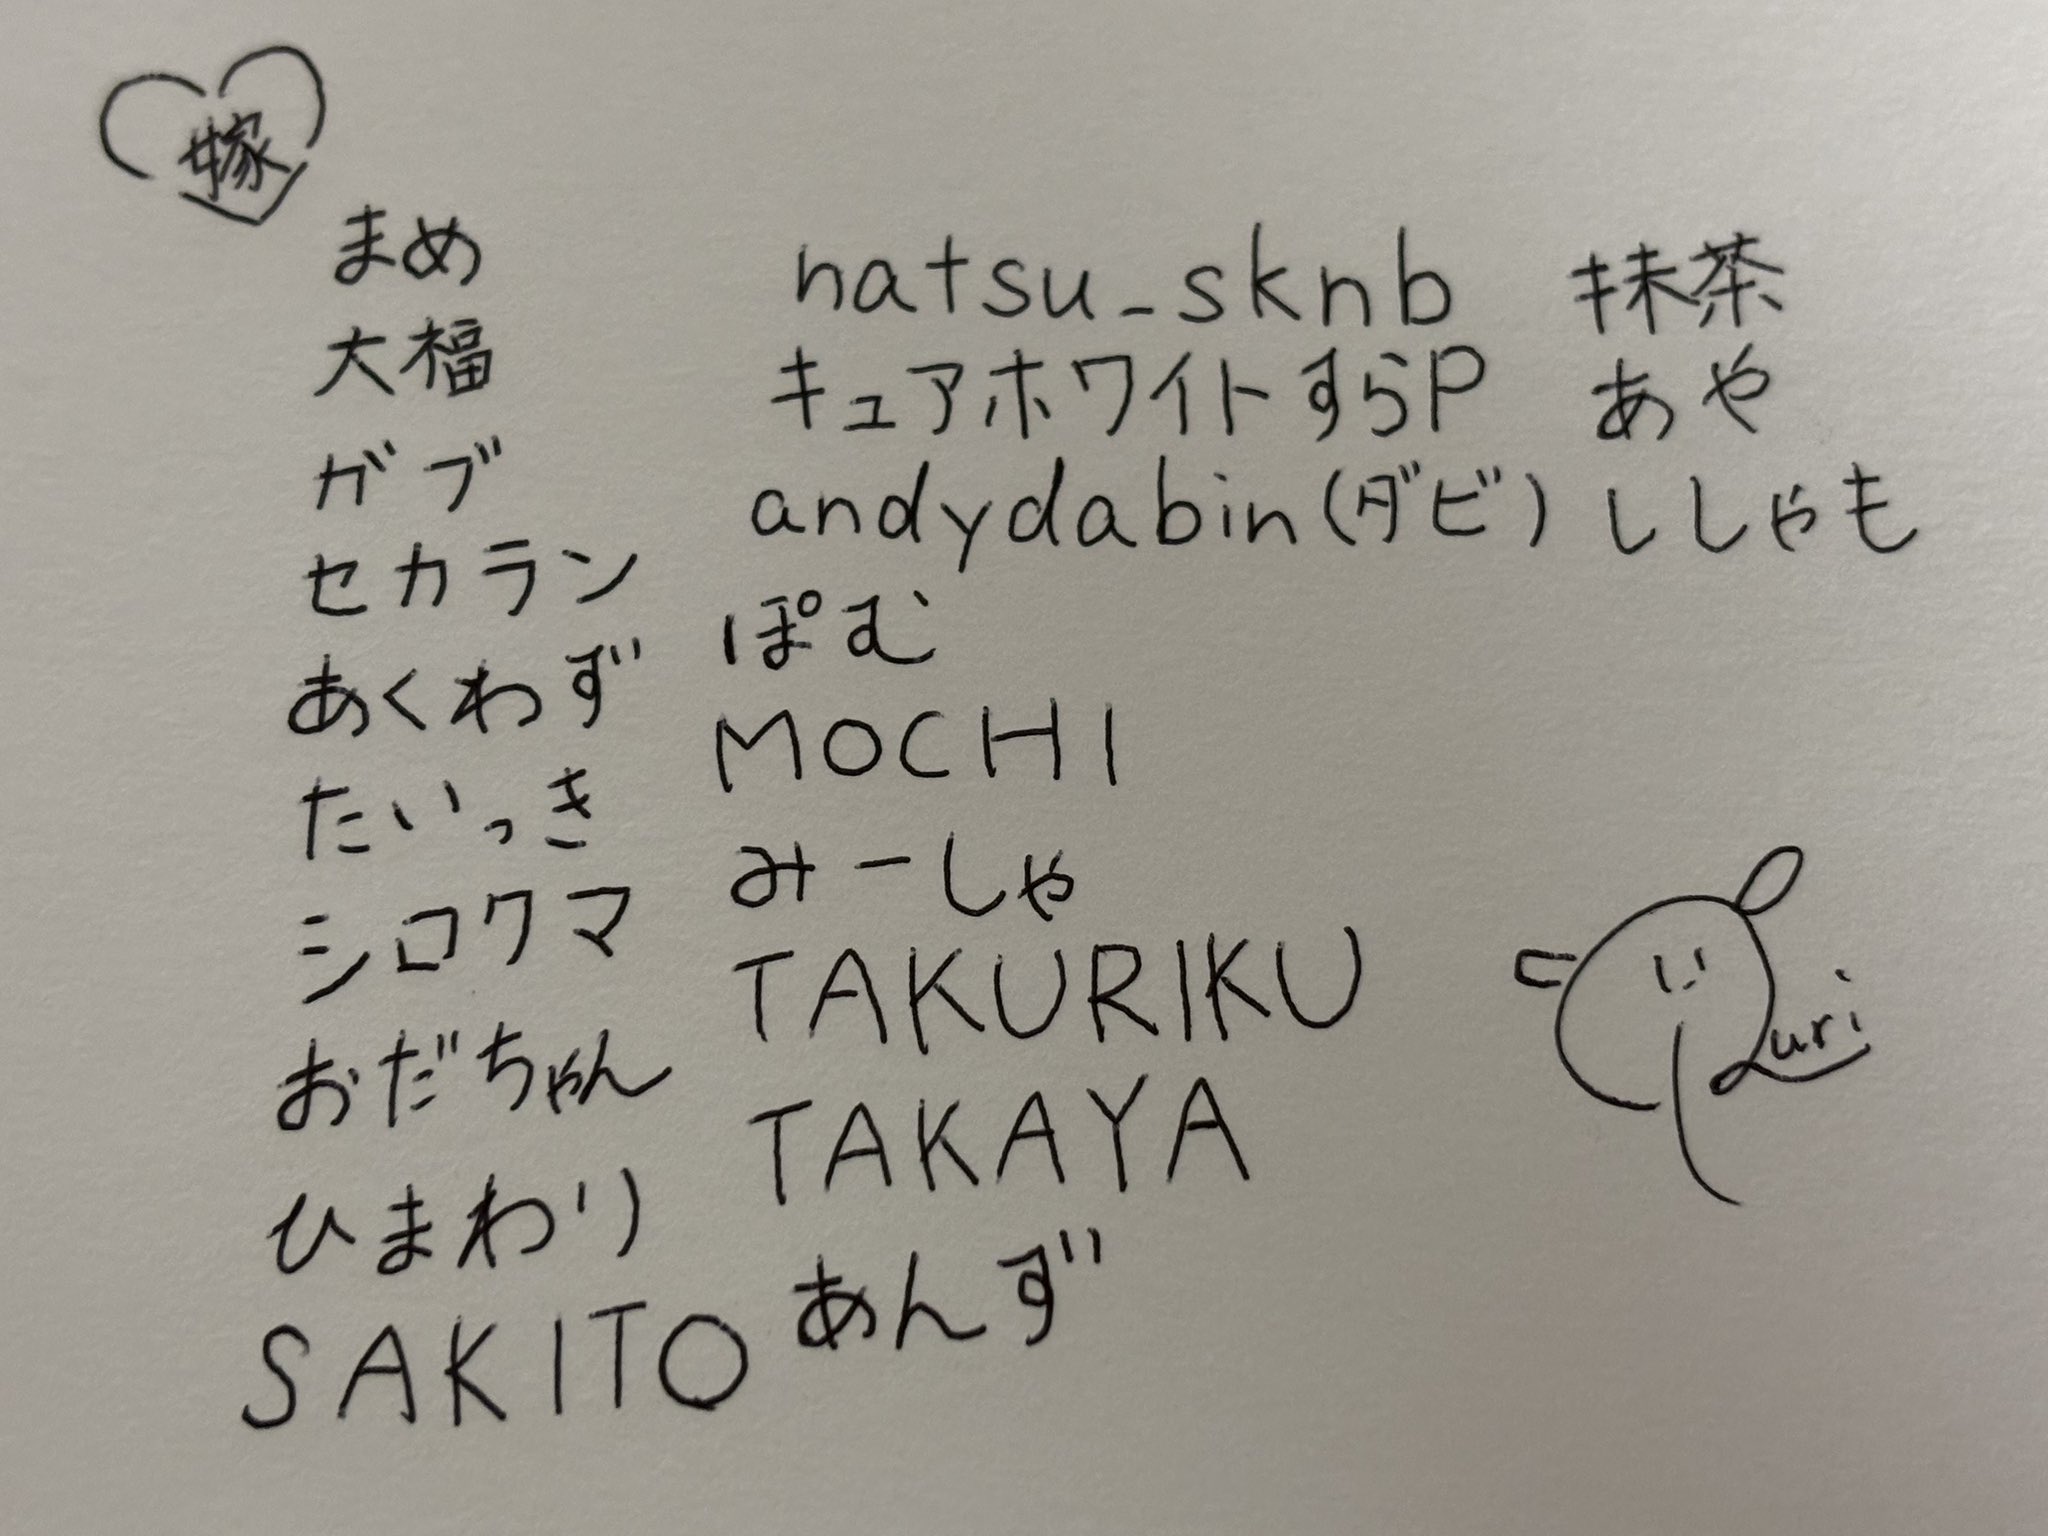 嫁
まめ
大福
ガブ
セカラン
あくわず
たいっき
シロクマ
おだちゃん
ひまわり
SAKITO
natsu_sknb
キュアホワイトすらP
andydabin(ダビ)
ぽむ
MOCHI
みーしゃ
TAKURIKU
TAKAYA
あんず
抹茶
あや
ししゃも